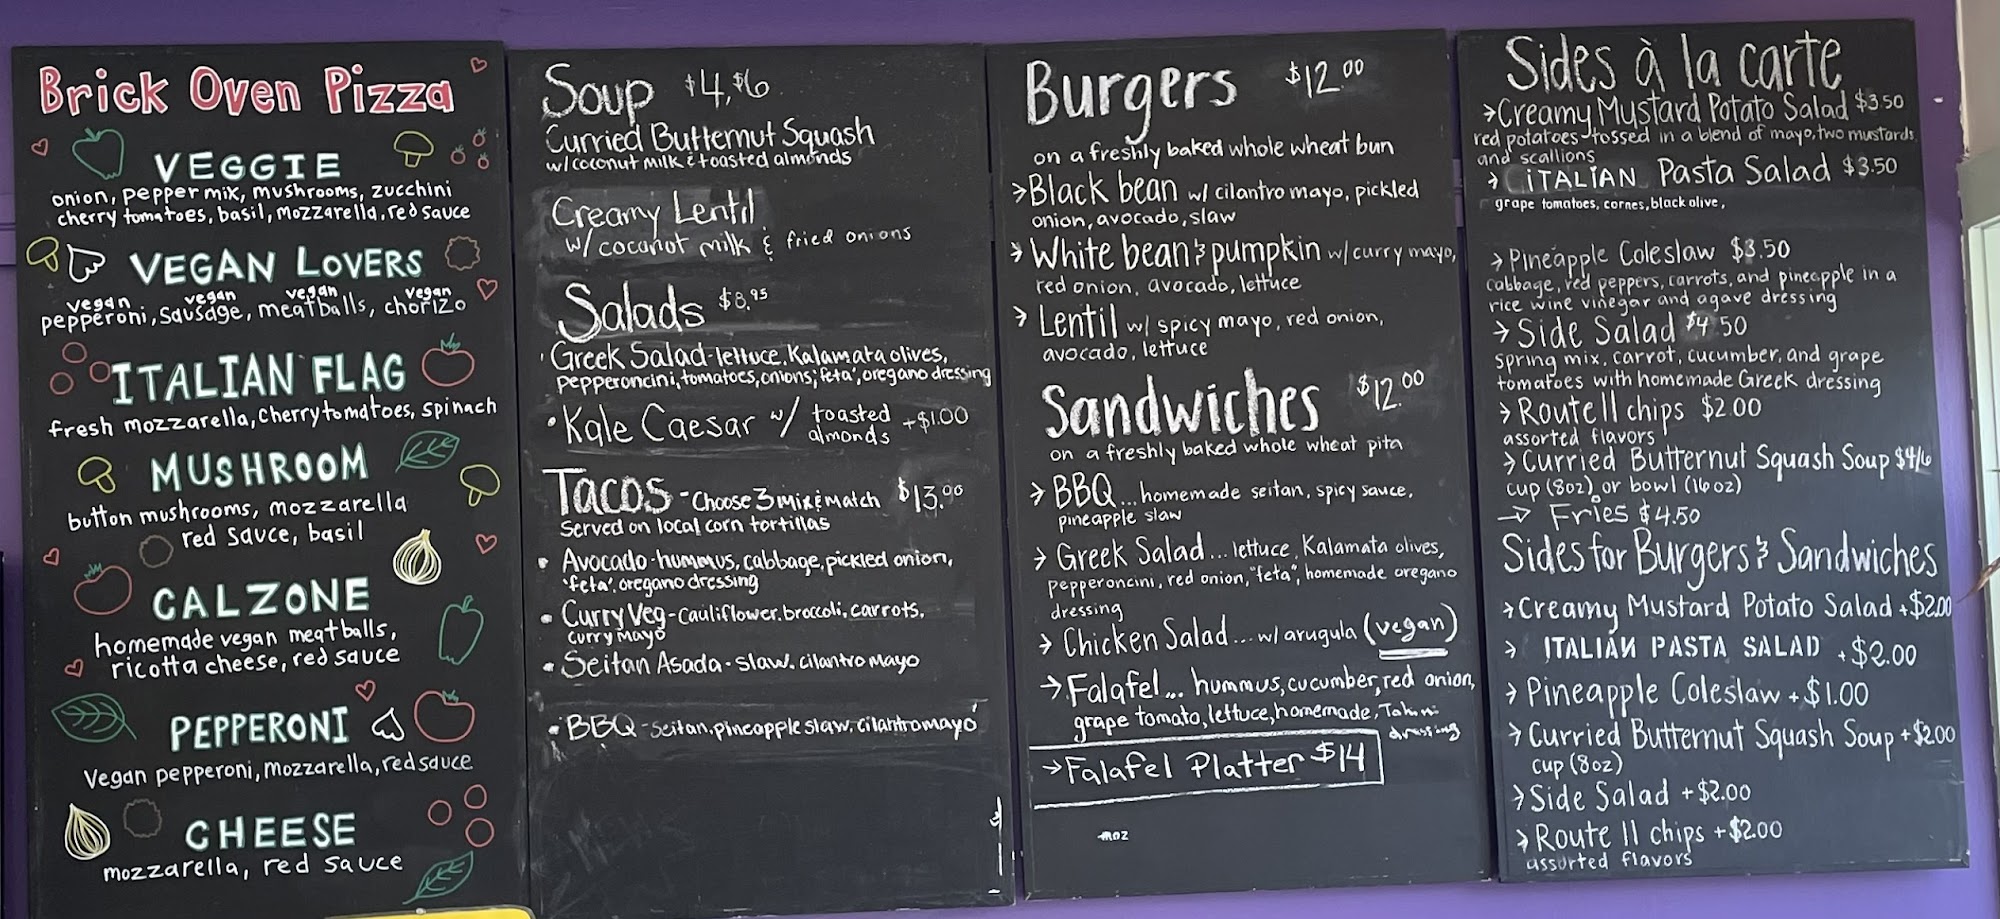 Brick Oven Pizza
VEGGIE
onion, pepper mix, mushrooms, zucchini
cherry tomatoes, basil, mozzarella, red sauce
VEGAN LOVERS
vegan vegan vegan vegan
pepperoni, sausage, meatballs, chorizo
ITALIAN FLAG
fresh mozzarella, cherry tomatoes, spinach
MUSHROOM
button mushrooms, mozzarella
red sauce, basil
CALZONE
homemade vegan meatballs,
ricotta cheese, red sauce
PEPPERONI
Vegan pepperoni, mozzarella, red sauce
CHEESE
mozzarella, red sauce
Soup $4, $6
Curried Butternut Squash
w/coconut milk & toasted almonds
Creamy Lentil
w/ coconut milk & fried onions
Salads $8.95
• Greek Salad - lettuce, Kalamata olives,
pepperoncini, tomatoes, onions, 'feta', oregano dressing
• Kale Caesar w/ toasted almonds +$1.00
Tacos - Choose 3 Mix & Match $13.00
Served on local corn tortillas
• Avocado - hummus, cabbage, pickled onion,
'feta', oregano dressing
• Curry Veg - cauliflower, broccoli, carrots,
curry mayo
• Seitan Asada - slaw, cilantro mayo
• BBQ - seitan, pineapple slaw, cilantro mayo
Burgers $12.00
on a freshly baked whole wheat bun
→ Black bean w/ cilantro mayo, pickled
onion, avocado, slaw
→ White bean & pumpkin w/ curry mayo,
red onion, avocado, lettuce
→ Lentil w/ spicy mayo, red onion,
avocado, lettuce
Sandwiches $12.00
on a freshly baked whole wheat pita
→ BBQ... homemade seitan, spicy sauce,
pineapple slaw
→ Greek Salad... lettuce, Kalamata olives,
pepperoncini, red onion, "feta", homemade oregano
dressing
→ Chicken Salad... w/ arugula (vegan)
→ Falafel... hummus, cucumber, red onion,
grape tomato, lettuce, homemade, Tahini
dressing
→ Falafel Platter $14
moz
Sides à la carte
→ Creamy Mustard Potato Salad $3.50
red potatoes tossed in a blend of mayo, two mustards
and scallions
→ ITALIAN Pasta Salad $3.50
grape tomatoes, cornes, black olive,
→ Pineapple Coleslaw $3.50
cabbage, red peppers, carrots, and pineapple in a
rice wine vinegar and agave dressing
→ Side Salad $4.50
spring mix, carrot, cucumber, and grape
tomatoes with homemade Greek dressing
→ Route 11 chips $2.00
assorted flavors
→ Curried Butternut Squash Soup $4/6
cup (8oz) or bowl (16oz)
→ Fries $4.50
Sides for Burgers & Sandwiches
→ Creamy Mustard Potato Salad +$2.00
→ ITALIAN PASTA SALAD +$2.00
→ Pineapple Coleslaw +$1.00
→ Curried Butternut Squash Soup +$2.00
cup (8oz)
→ Side Salad +$2.00
→ Route 11 chips +$2.00
assorted flavors